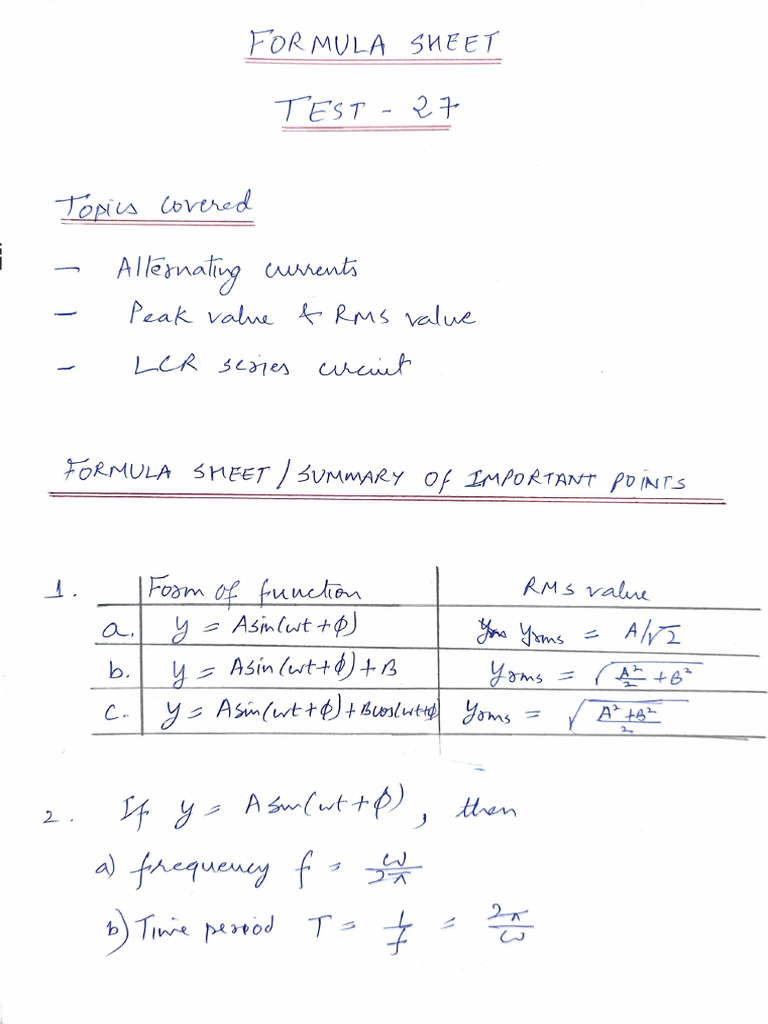 FORMULA SHEET
TEST - 27
Topics covered
- Alternating currents
- Peak value & RMS value
- LCR series circuit
FORMULA SHEET / SUMMARY OF IMPORTANT POINTS
1. Form of function RMS value
a. y = Asin(ωt+ϕ) yrms = A/√2
b. y = Asin(ωt+ϕ)+B yrms = √(A²/2 + B²)
c. y = Asin(ωt+ϕ)+Bcos(ωt+ϕ) yrms = √((A²+B²)/2)
2. If y = Asin(ωt+ϕ), then
a) frequency f = ω/2π
b) Time period T = 1/f = 2π/ω